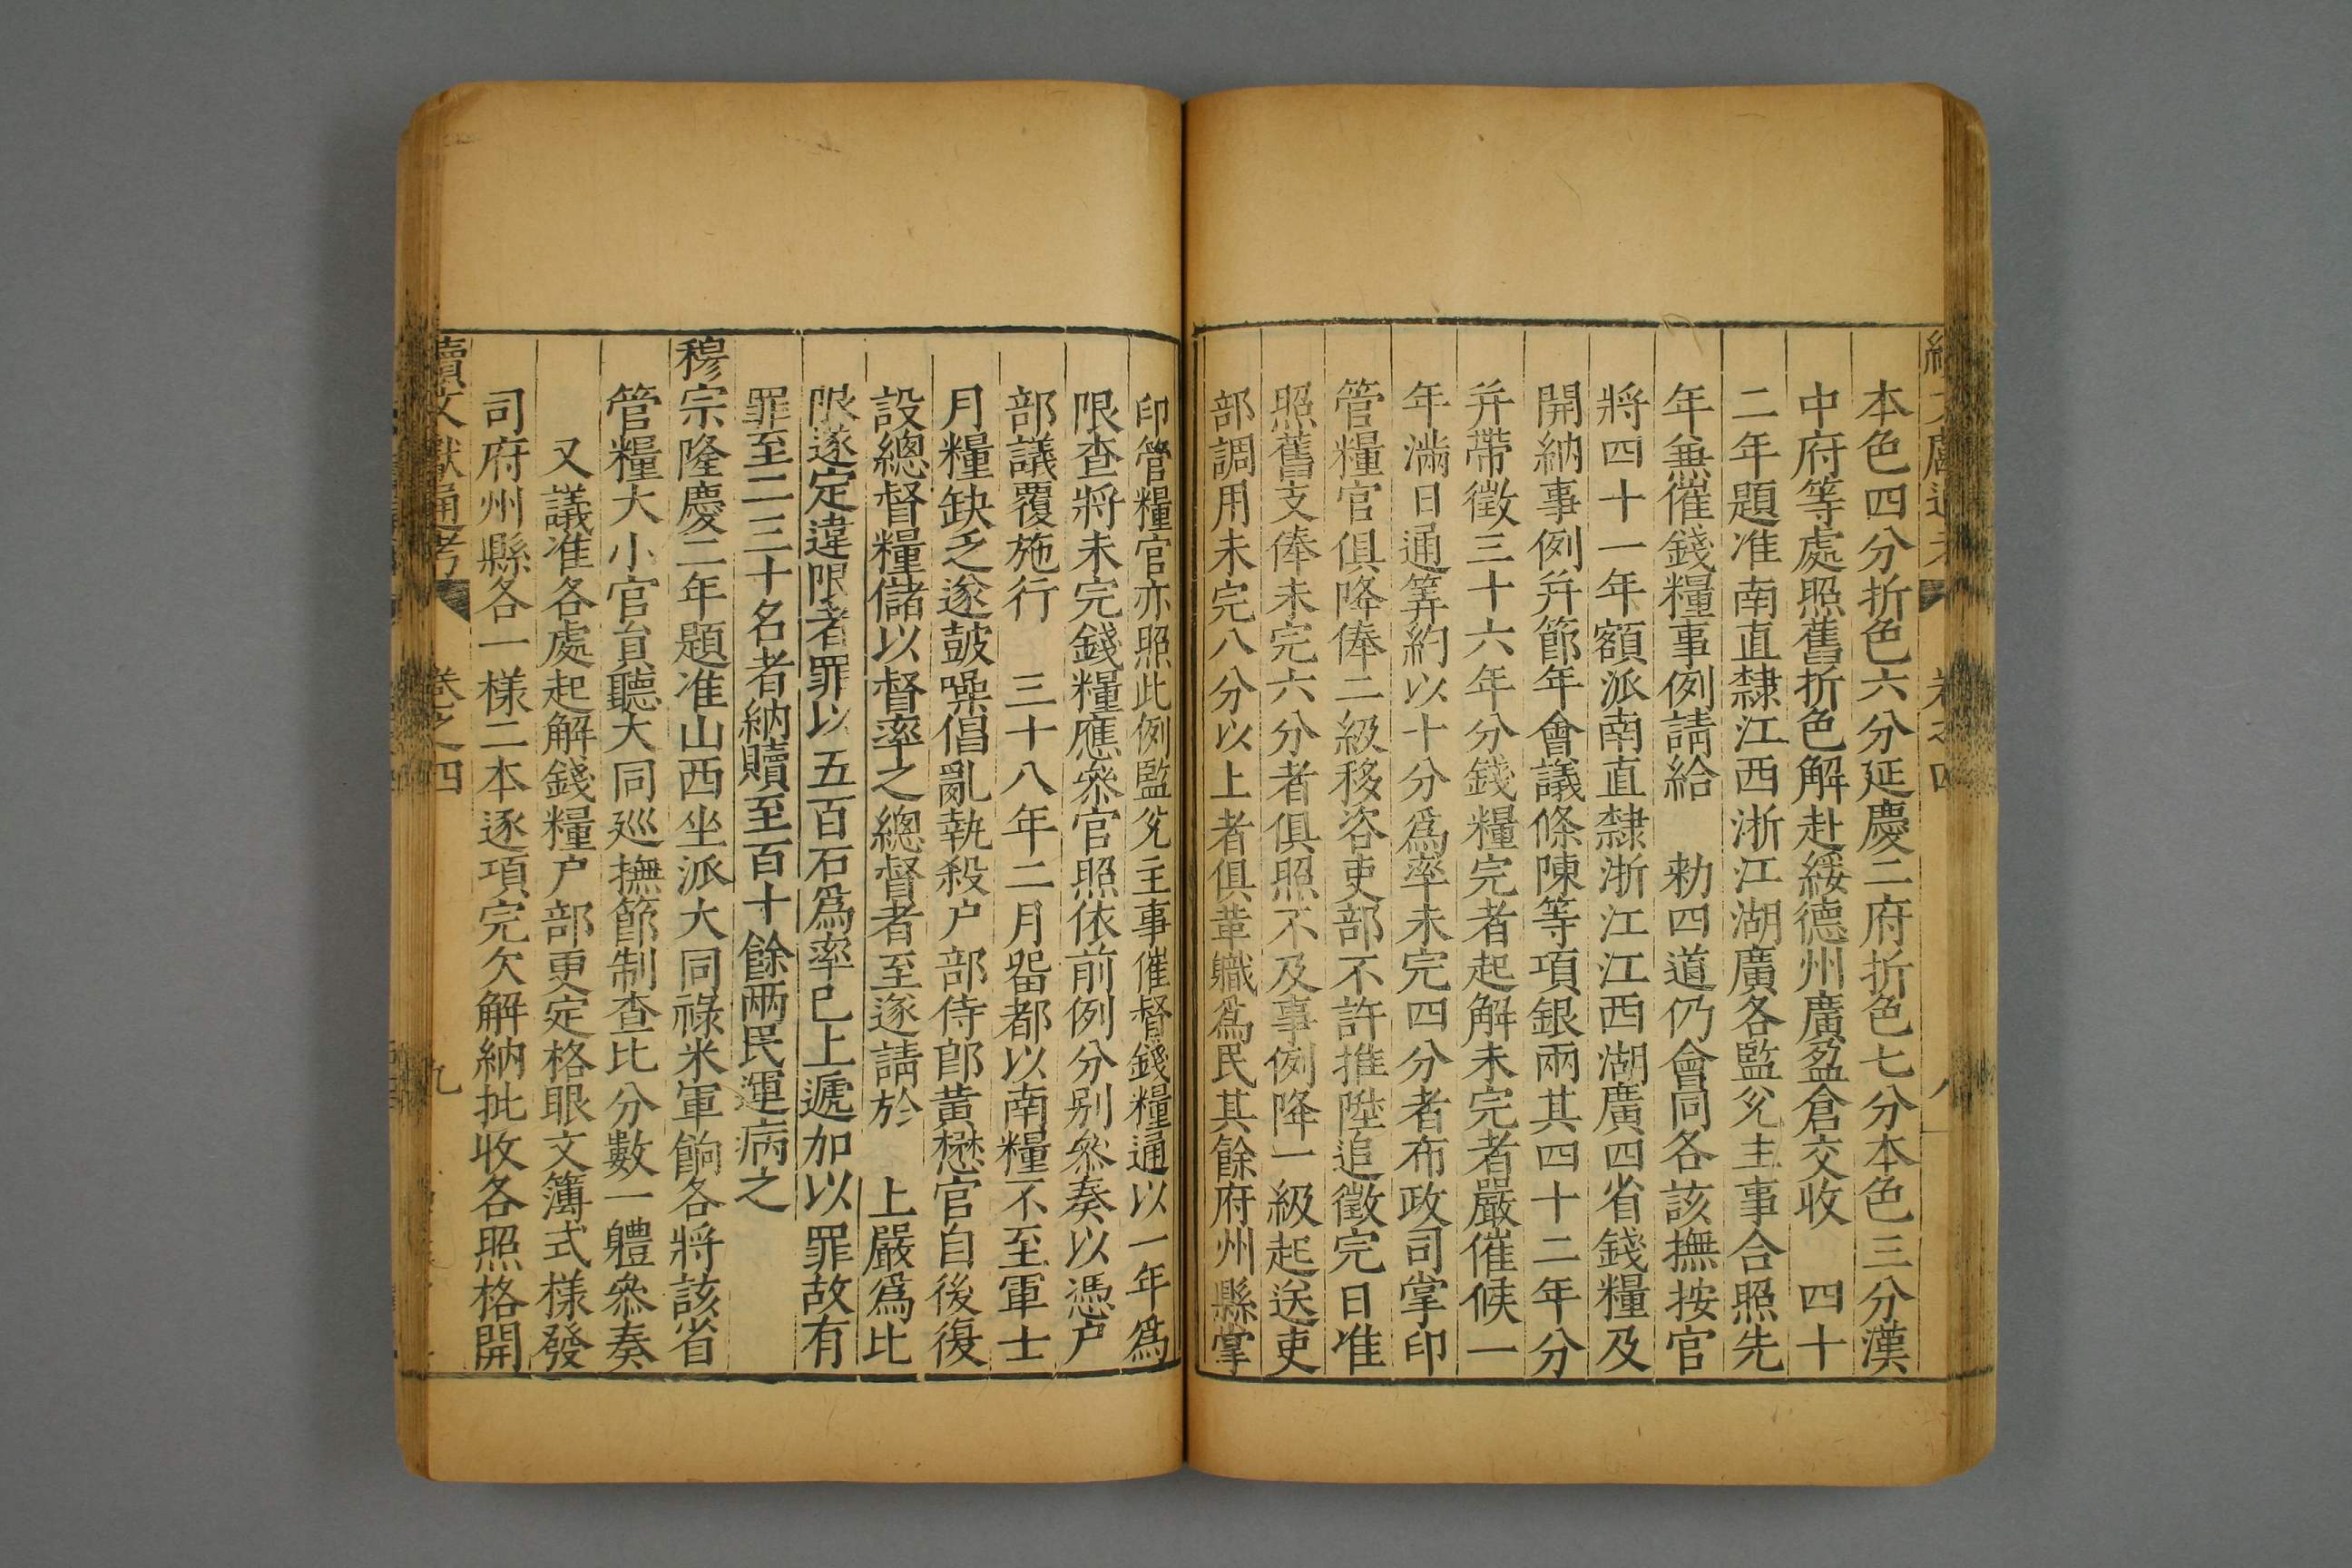 本色四分折色六分延慶二府折色七分本色三分漢
中府等處照舊折色解赴綏德州廣盈倉交收　四十
二年題准南直隸江西浙江湖廣各監兊主事合照先
年兼催錢糧事例請給　勑四道仍會同各該撫按官
將四十一年額派南直隸浙江江西湖廣四省錢糧及
開納事例并節年會議條陳等項銀兩其四十二年分
并帶徵三十六年分錢糧完者起解未完者嚴催候一
年滿日通筭約以十分爲率未完四分者布政司掌印
管糧官俱降俸二級移咨吏部不許推陞追徵完日准
照舊支俸未完六分者俱照不及事例降一級起送吏
部調用未完八分以上者俱革職爲民其餘府州縣掌
印管糧官亦照此例監兊主事催督錢糧通以一年爲
限查將未完錢糧應叅官照依前例分别叅奏以憑户
部議覆施行　三十八年二月畱都以南糧不至軍士
月糧缺乏遂鼓噪倡亂執殺户部侍郎黄懋官自後復
設總督糧儲以督率之總督者至遂請於　上嚴爲比
限遂定違限者罪以五百石爲率已上遞加以罪故有
罪至二三十名者納贖至百十餘兩民運病之
穆宗隆慶二年題准山西坐派大同祿米軍餉各將該省
管糧大小官員聽大同廵撫節制查比分數一體叅奏
又議准各處起解錢糧户部更定格眼文簿式樣發
司府州縣各一様二本逐項完欠解納批收各照格開
續文獻通考　卷之四　九